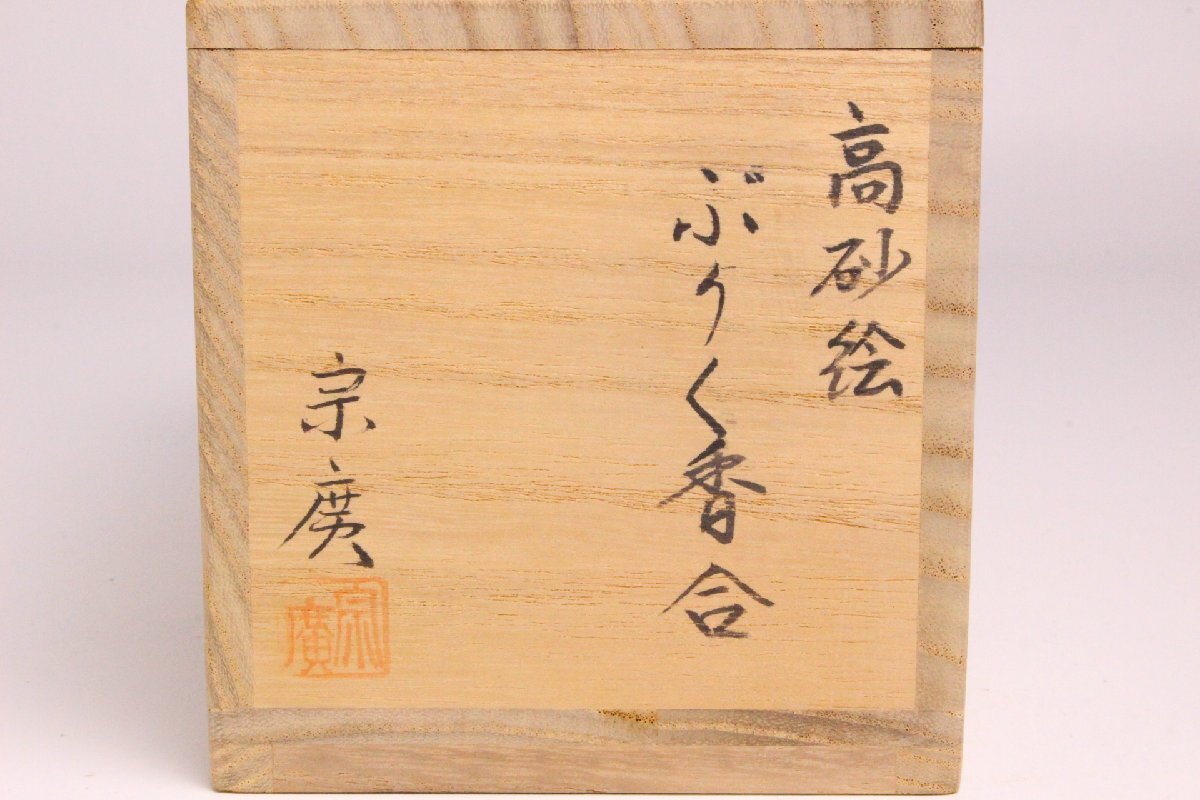 高砂絵
ぶり〱香合
宗廣
宗廣